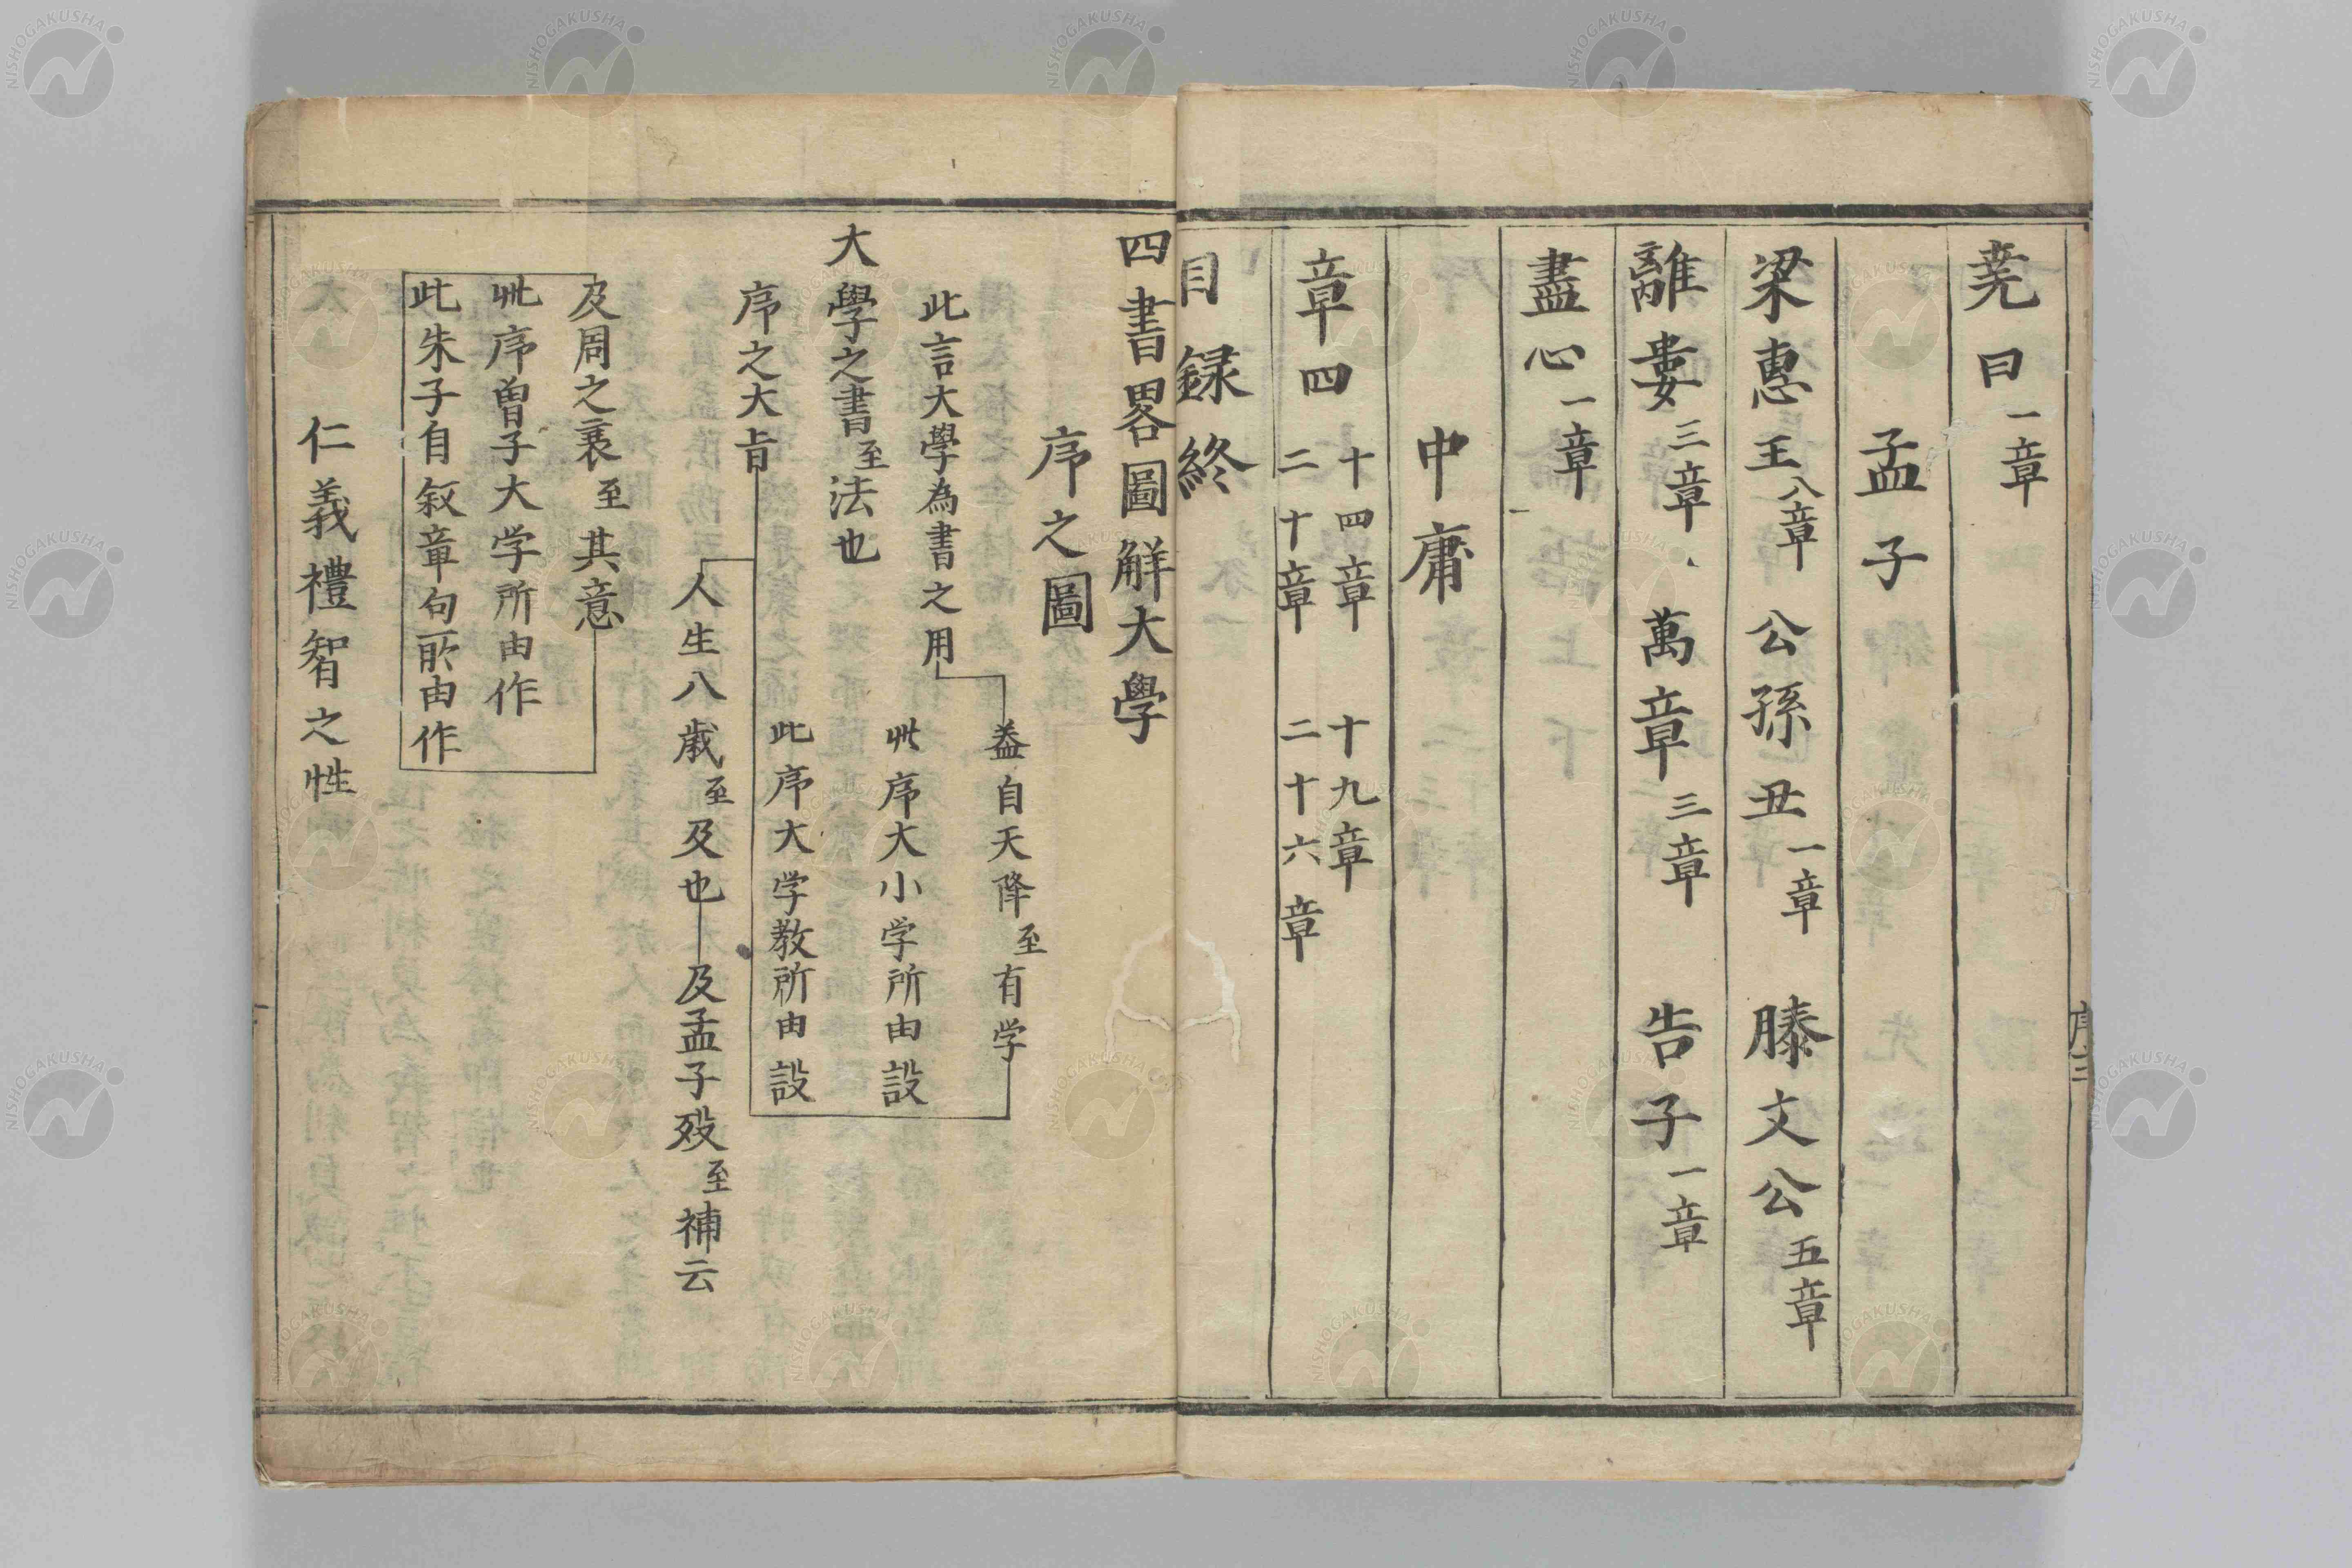 尭曰一章
孟子
梁惠王八章 公孫丑一章 滕文公五章
離婁三章 萬章三章 告子一章
盡心一章
中庸
章四 十四章 十九章
二十章 二十六章
目録終
序三
四書畧圖解大學
序之圖
蓋自天降至有学
此言大學為書之用
此序大小学所由設
大學之書至法也
此序大学教所由設
序之大㫖
人生八歳至及也
及孟子歿至補云
及周之衰至其意
此序曽子大学所由作
此朱子自叙章句所由作
仁義禮智之性
NISHOGAKUSHA